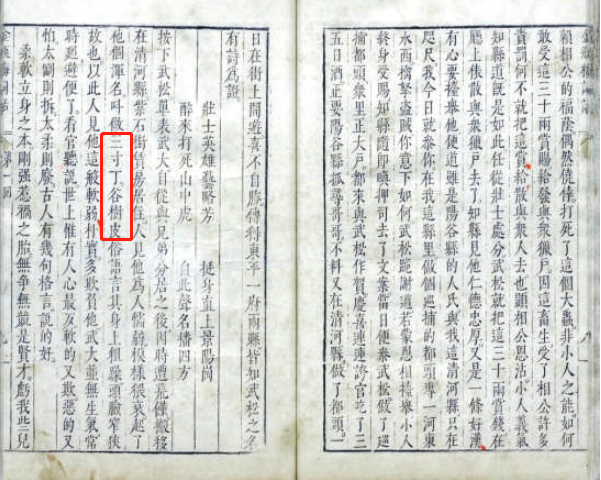 賴相公的福蔭偶然僥倖打死了這個大蟲非小人之能如何
敢受這三十兩賞賜給發與衆獵戶因這畜生受了相公許多
責罰何不就把這賞給散與衆人去也顯相公恩沾小人義氣
知縣道既是如此任從壯士處分武松就把這三十兩賞錢在
廳上俵散與衆獵戶去了知縣見他仁德忠厚又是一條好漢
有心要擡舉他便道雖是陽谷縣的人氏與我這清河縣只在
咫尺我今日就參你在我這縣里做個巡捕的都頭專一河東
水西擒拏盜賊你意下如何武松跪謝道若蒙恩相擡舉小人
終身受賜知縣隨即喚押司立了文案當日便參武松做了巡
捕都頭衆里正大戶都來與武松作賀慶喜連連誇官吃了三
五日酒正要陽谷縣抓尋哥哥不料又在清河縣做了都頭一
日在街上閒遊喜不自勝傳得東平一府兩縣皆知武松之名
有詩為證
壯士英雄藝略芳 挺身直上景陽岡
醉來打死山中虎 自此聲名播四方
按下武松單表武大自從與兄弟分居之後因時遭荒饉搬移
在清河縣紫石街賃房居住人見他為人懦弱模樣猥蕤起了
他個渾名叫做三寸丁谷樹皮俗語言其身上粗躁頭臉窄狹
故也以此人見他這般軟弱朴實多欺負他武大並無生氣常
時廻避便了看官聽說世上惟有人心最歹軟的又欺惡的又
怕太剛則折太柔則廢古人有幾句格言說的好
柔軟立身之本剛强惹禍之胎無爭無競是賢才虧我些兒
金瓶梅詞話 第一回